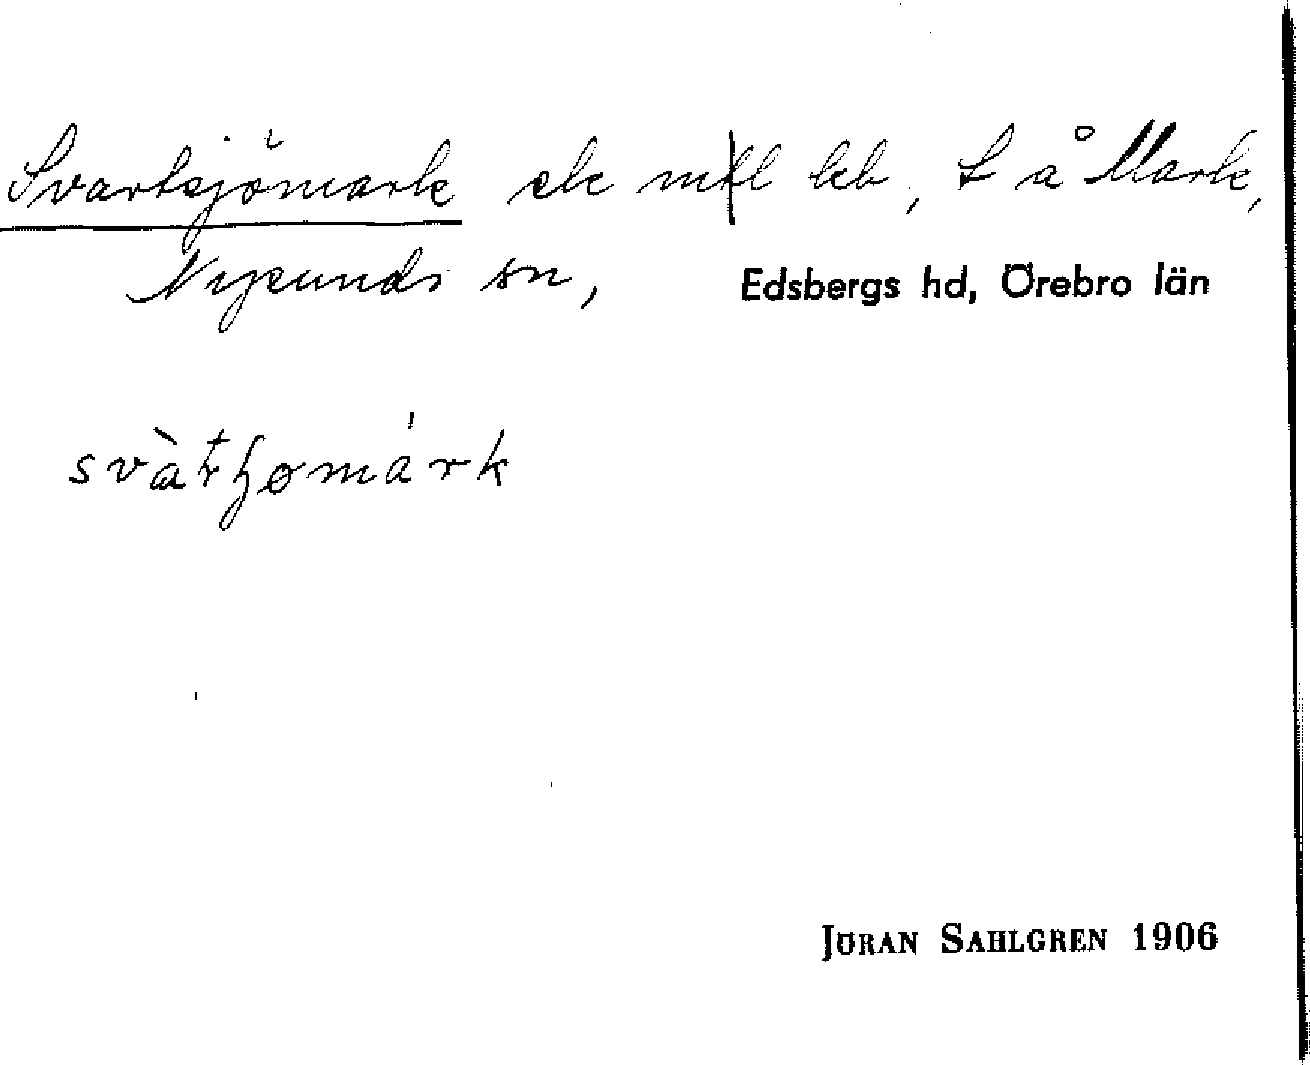 Svartsjömark ele mfl lkb, L å Mark,
Nysunds sn, Edsbergs hd, Örebro län
svàtɧømárk
JÖRAN SAHLGREN 1906